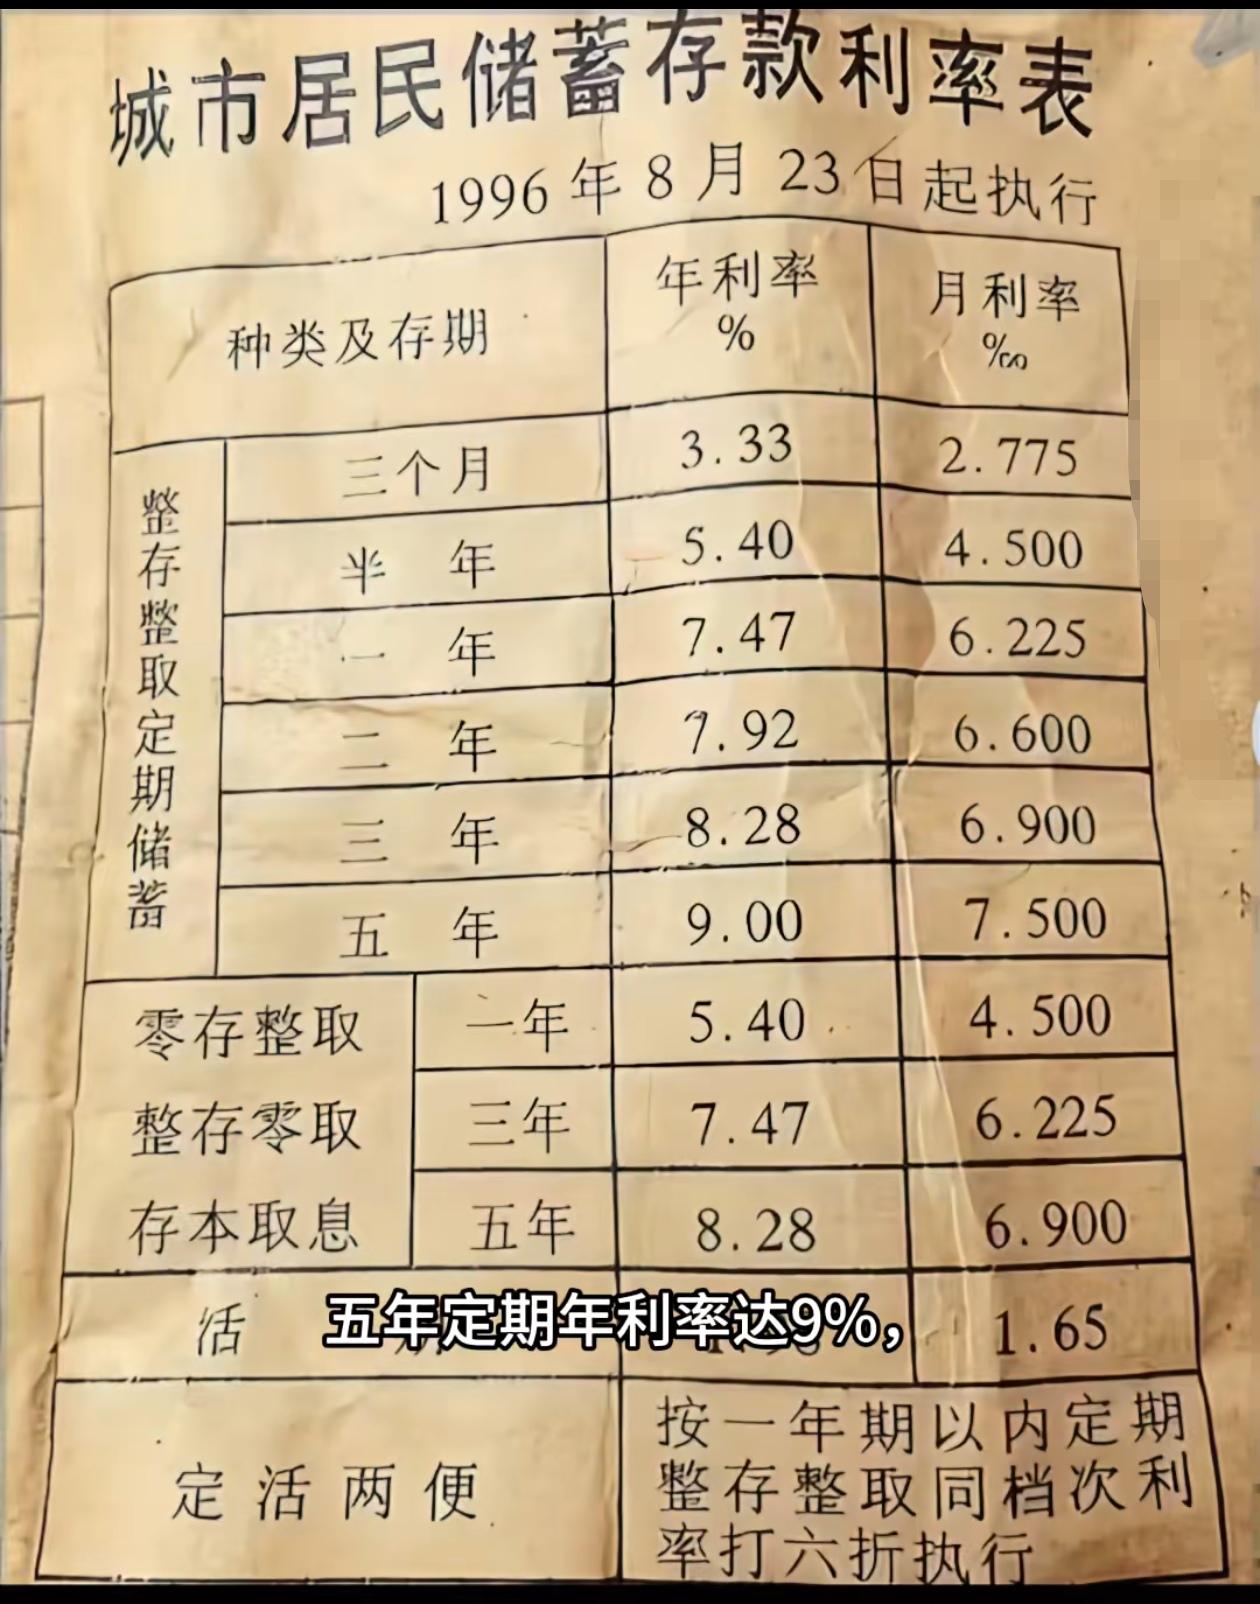 城市居民储蓄存款利率表
1996年8月23日起执行
种类及存期
年利率
%
月利率
‰
整存整取定期储蓄
三个月 3.33 2.775
半年 5.40 4.500
一年 7.47 6.225
二年 7.92 6.600
三年 8.28 6.900
五年 9.00 7.500
零存整取 一年 5.40 4.500
整存零取 三年 7.47 6.225
存本取息 五年 8.28 6.900
活 1.65
五年定期年利率达9%，
定活两便
按一年期以内定期
整存整取同档次利
率打六折执行